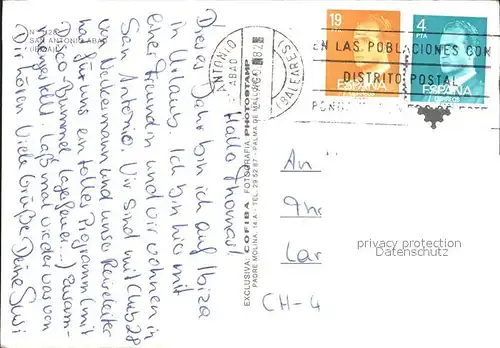 SAN ANTONIO ABAD
(IBIZA)
Hallo Thomas!
Dieses Jahr bin ich auf Ibiza
in Urlaub. Ich bin hier mit
einer Freundin und wir wohnen in
San Antonio. Wir sind mit Club 28
von Neckermann und unser Reiseleiter
hat für uns ein tolles Programm (mit
Disco-Bummel, Lagerfeuer...) zusam-
mengestellt. Laß mal wieder was von
Dir hören. Viele Grüße Deine Susi
EXCLUSIVA: COFIBA - FOTOGRAFIA: PHOTOSTAMP
PADRE MOLINA, 14 A - TEL. 29 52 87 - PALMA DE MALLORCA
ANTONIO
ABAD
82
(BALEARES)
19
PTA
ESPAÑA
CORREOS
4
PTA
ESPAÑA
CORREOS
EN LAS POBLACIONES CON
DISTRITO POSTAL
An
Lar
CH-4
privacy protection
VERDENDUNG